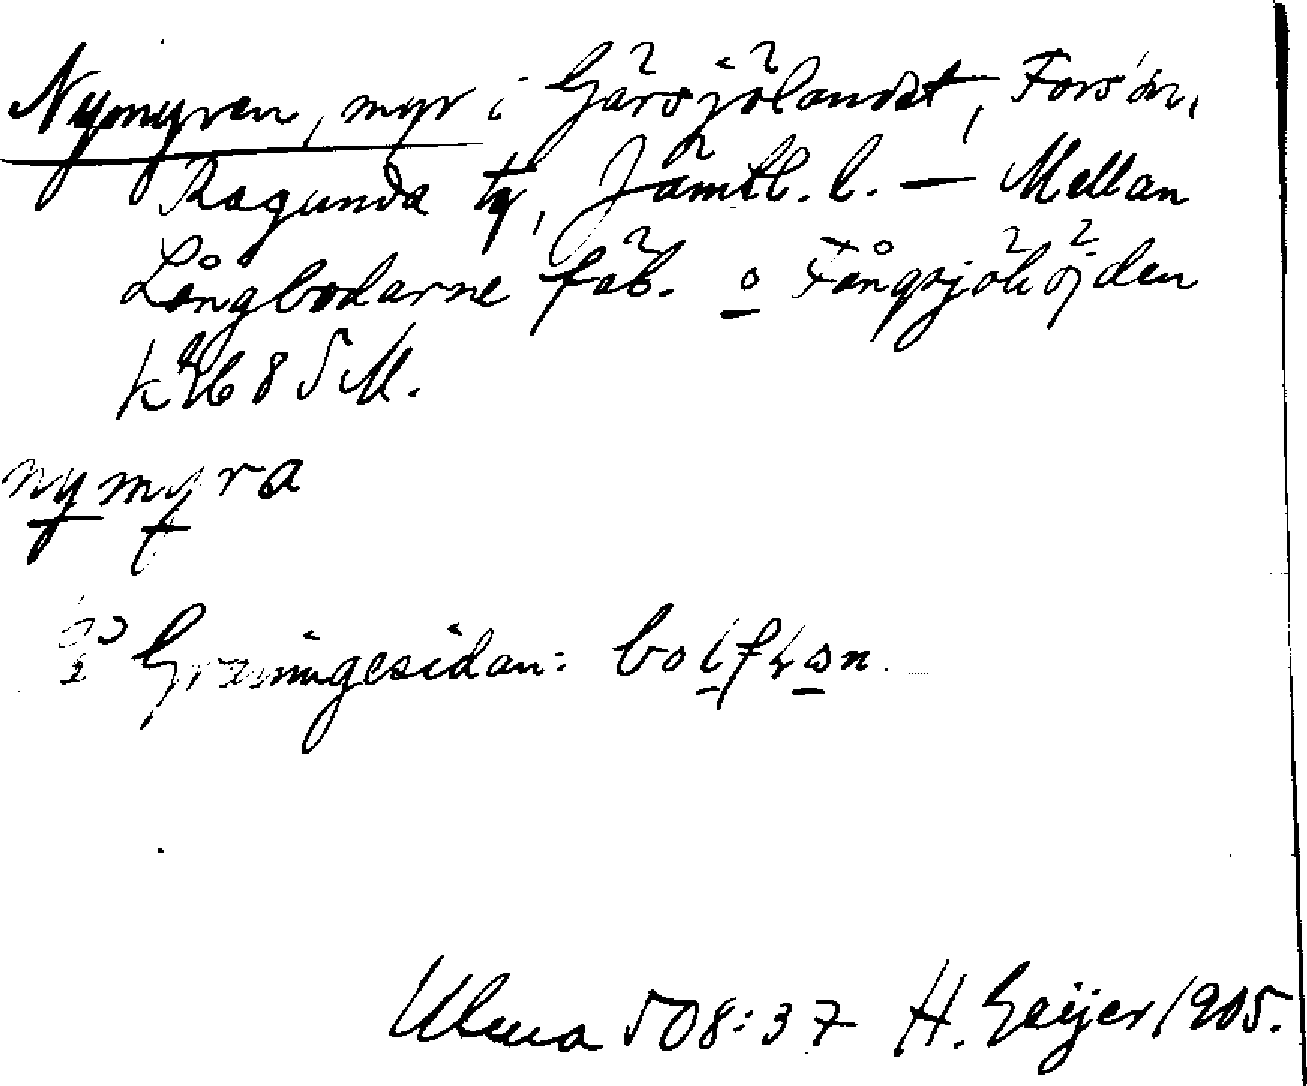 Nymyren, myr i Gärsjölandet, Forsån,
Ragunda tg, Jämtl. l. — Mellan
Långbodarne fäb. o Fångsjöhöjden
k 5 M.
nymyra
Graningesidan:
Ulma 508:37 H. Geijer 1905.